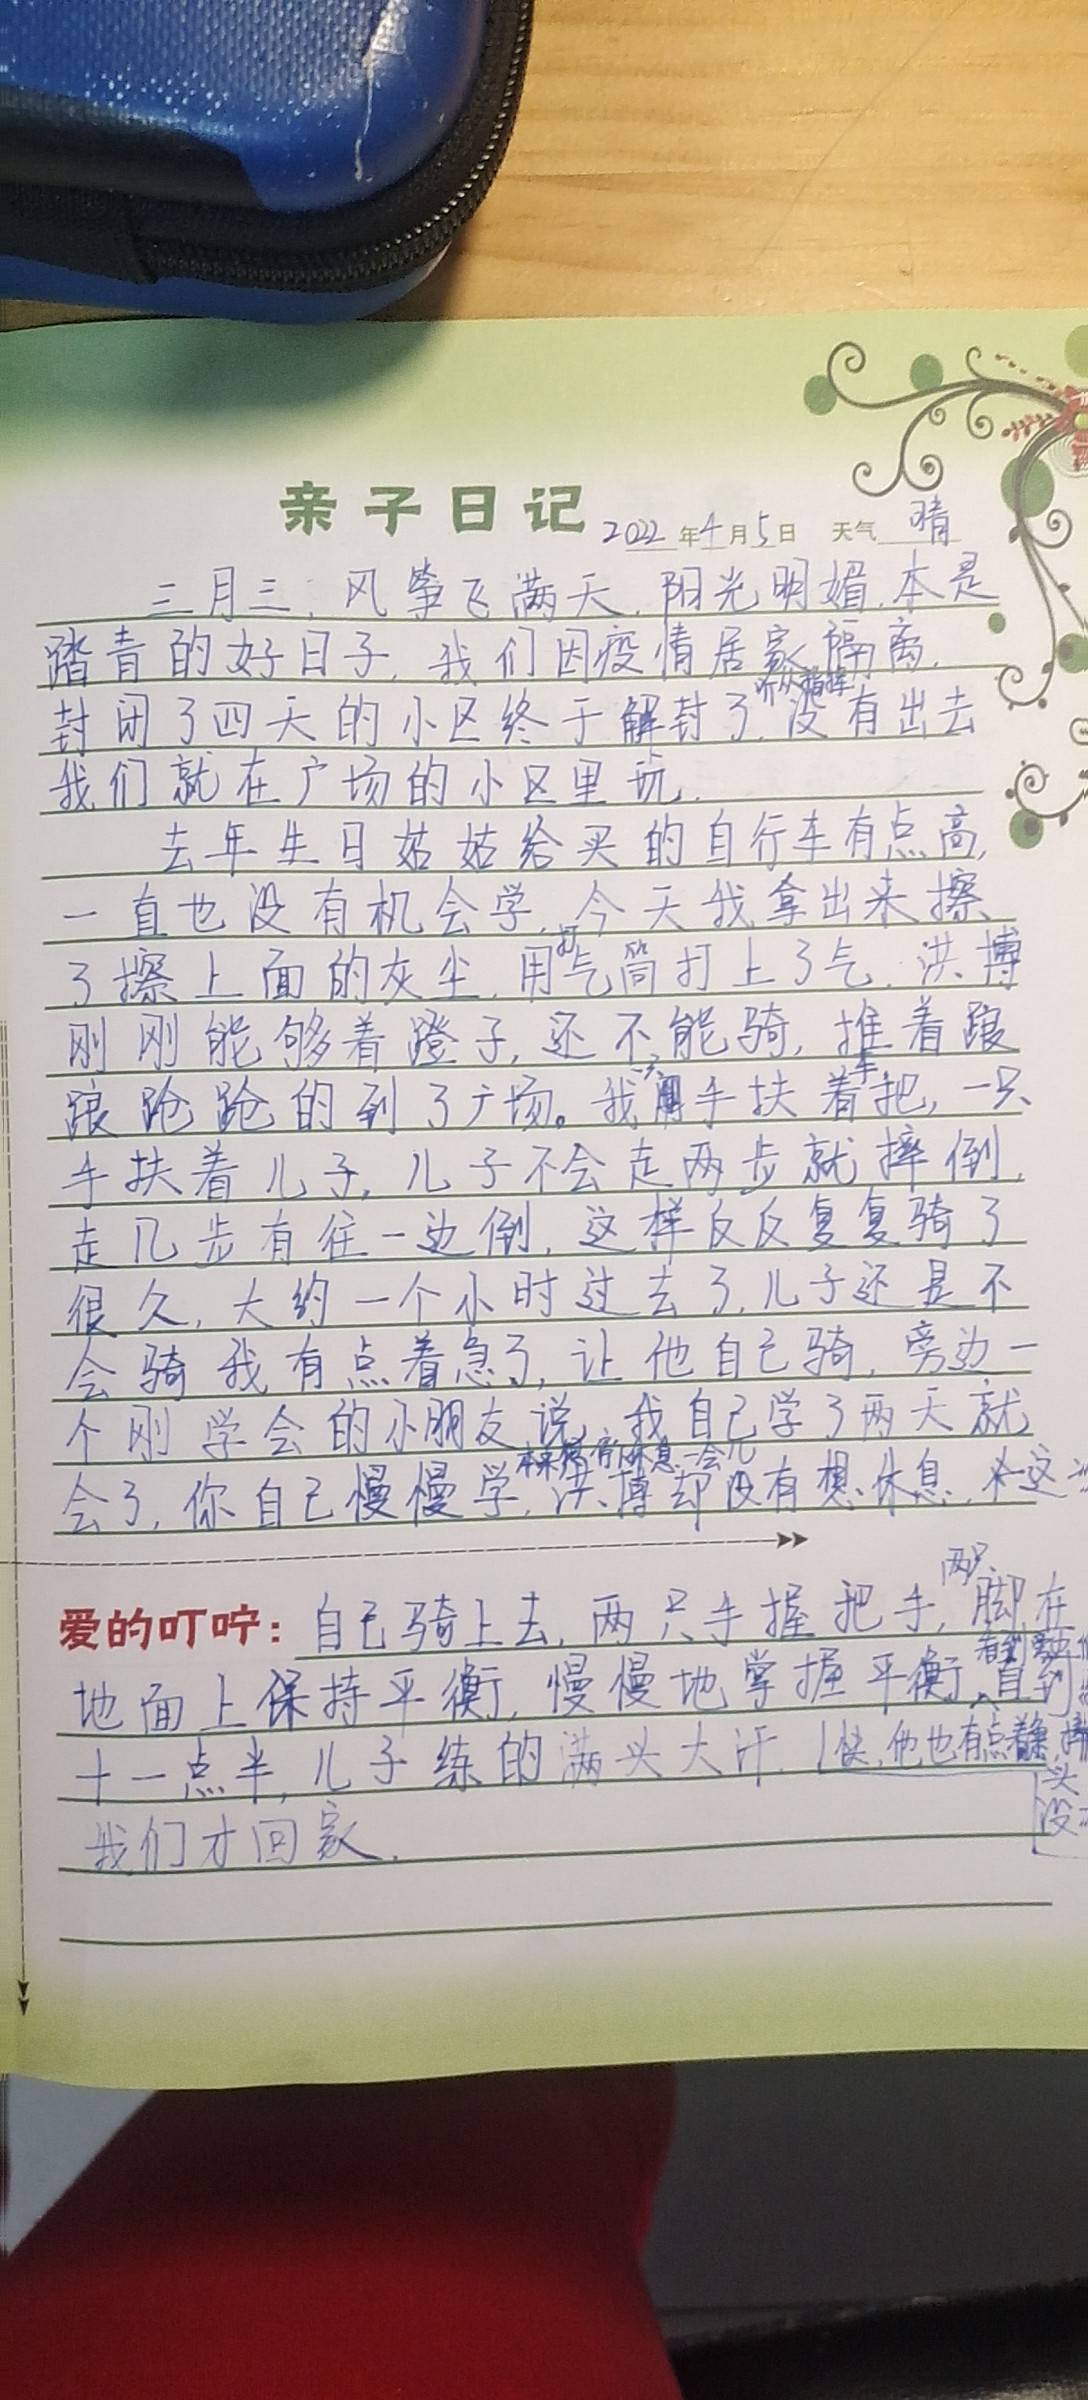 亲子日记 2022年4月5日 天气 晴
三月三，风筝飞满天，阳光明媚，本是
踏青的好日子，我们因疫情居家隔离，
听从指挥
封闭了四天的小区终于解封了，没有出去
我们就在广场的小区里玩，
去年生日姑姑给买的自行车有点高，
一直也没有机会学，今天我拿出来擦
打
了擦上面的灰尘，用气筒打上了气，洪博
刚刚能够着蹬子，还不能骑，推着踉
车
踉跄跄的到了广场。我手扶着把，一只
手扶着儿子，儿子不会走两步就摔倒，
走几步有往一边倒，这样反反复复骑了
很久，大约一个小时过去了，儿子还是不
会骑我有点着急了，让他自己骑，旁边一
个刚学会的小朋友说，我自己学了两天就
休息一会儿
会了，你自己慢慢学，洪博却没有想休息，这
两只
爱的叮咛：自己骑上去，两只手握把手，脚在
地面上保持平衡，慢慢地掌握平衡，直到
十一点半，儿子练的满头大汗，他也有点
头
没
我们才回家，